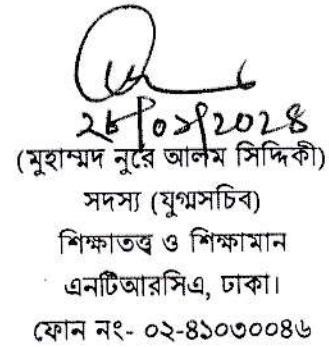 ২৮/০১/২০২৪
(মুহাম্মদ নুরে আলম সিদ্দিকী)
সদস্য (যুগ্মসচিব)
শিক্ষাতত্ত্ব ও শিক্ষামান
এনটিআরসিএ, ঢাকা।
ফোন নং- ০২-৪১০৩০০৪৬